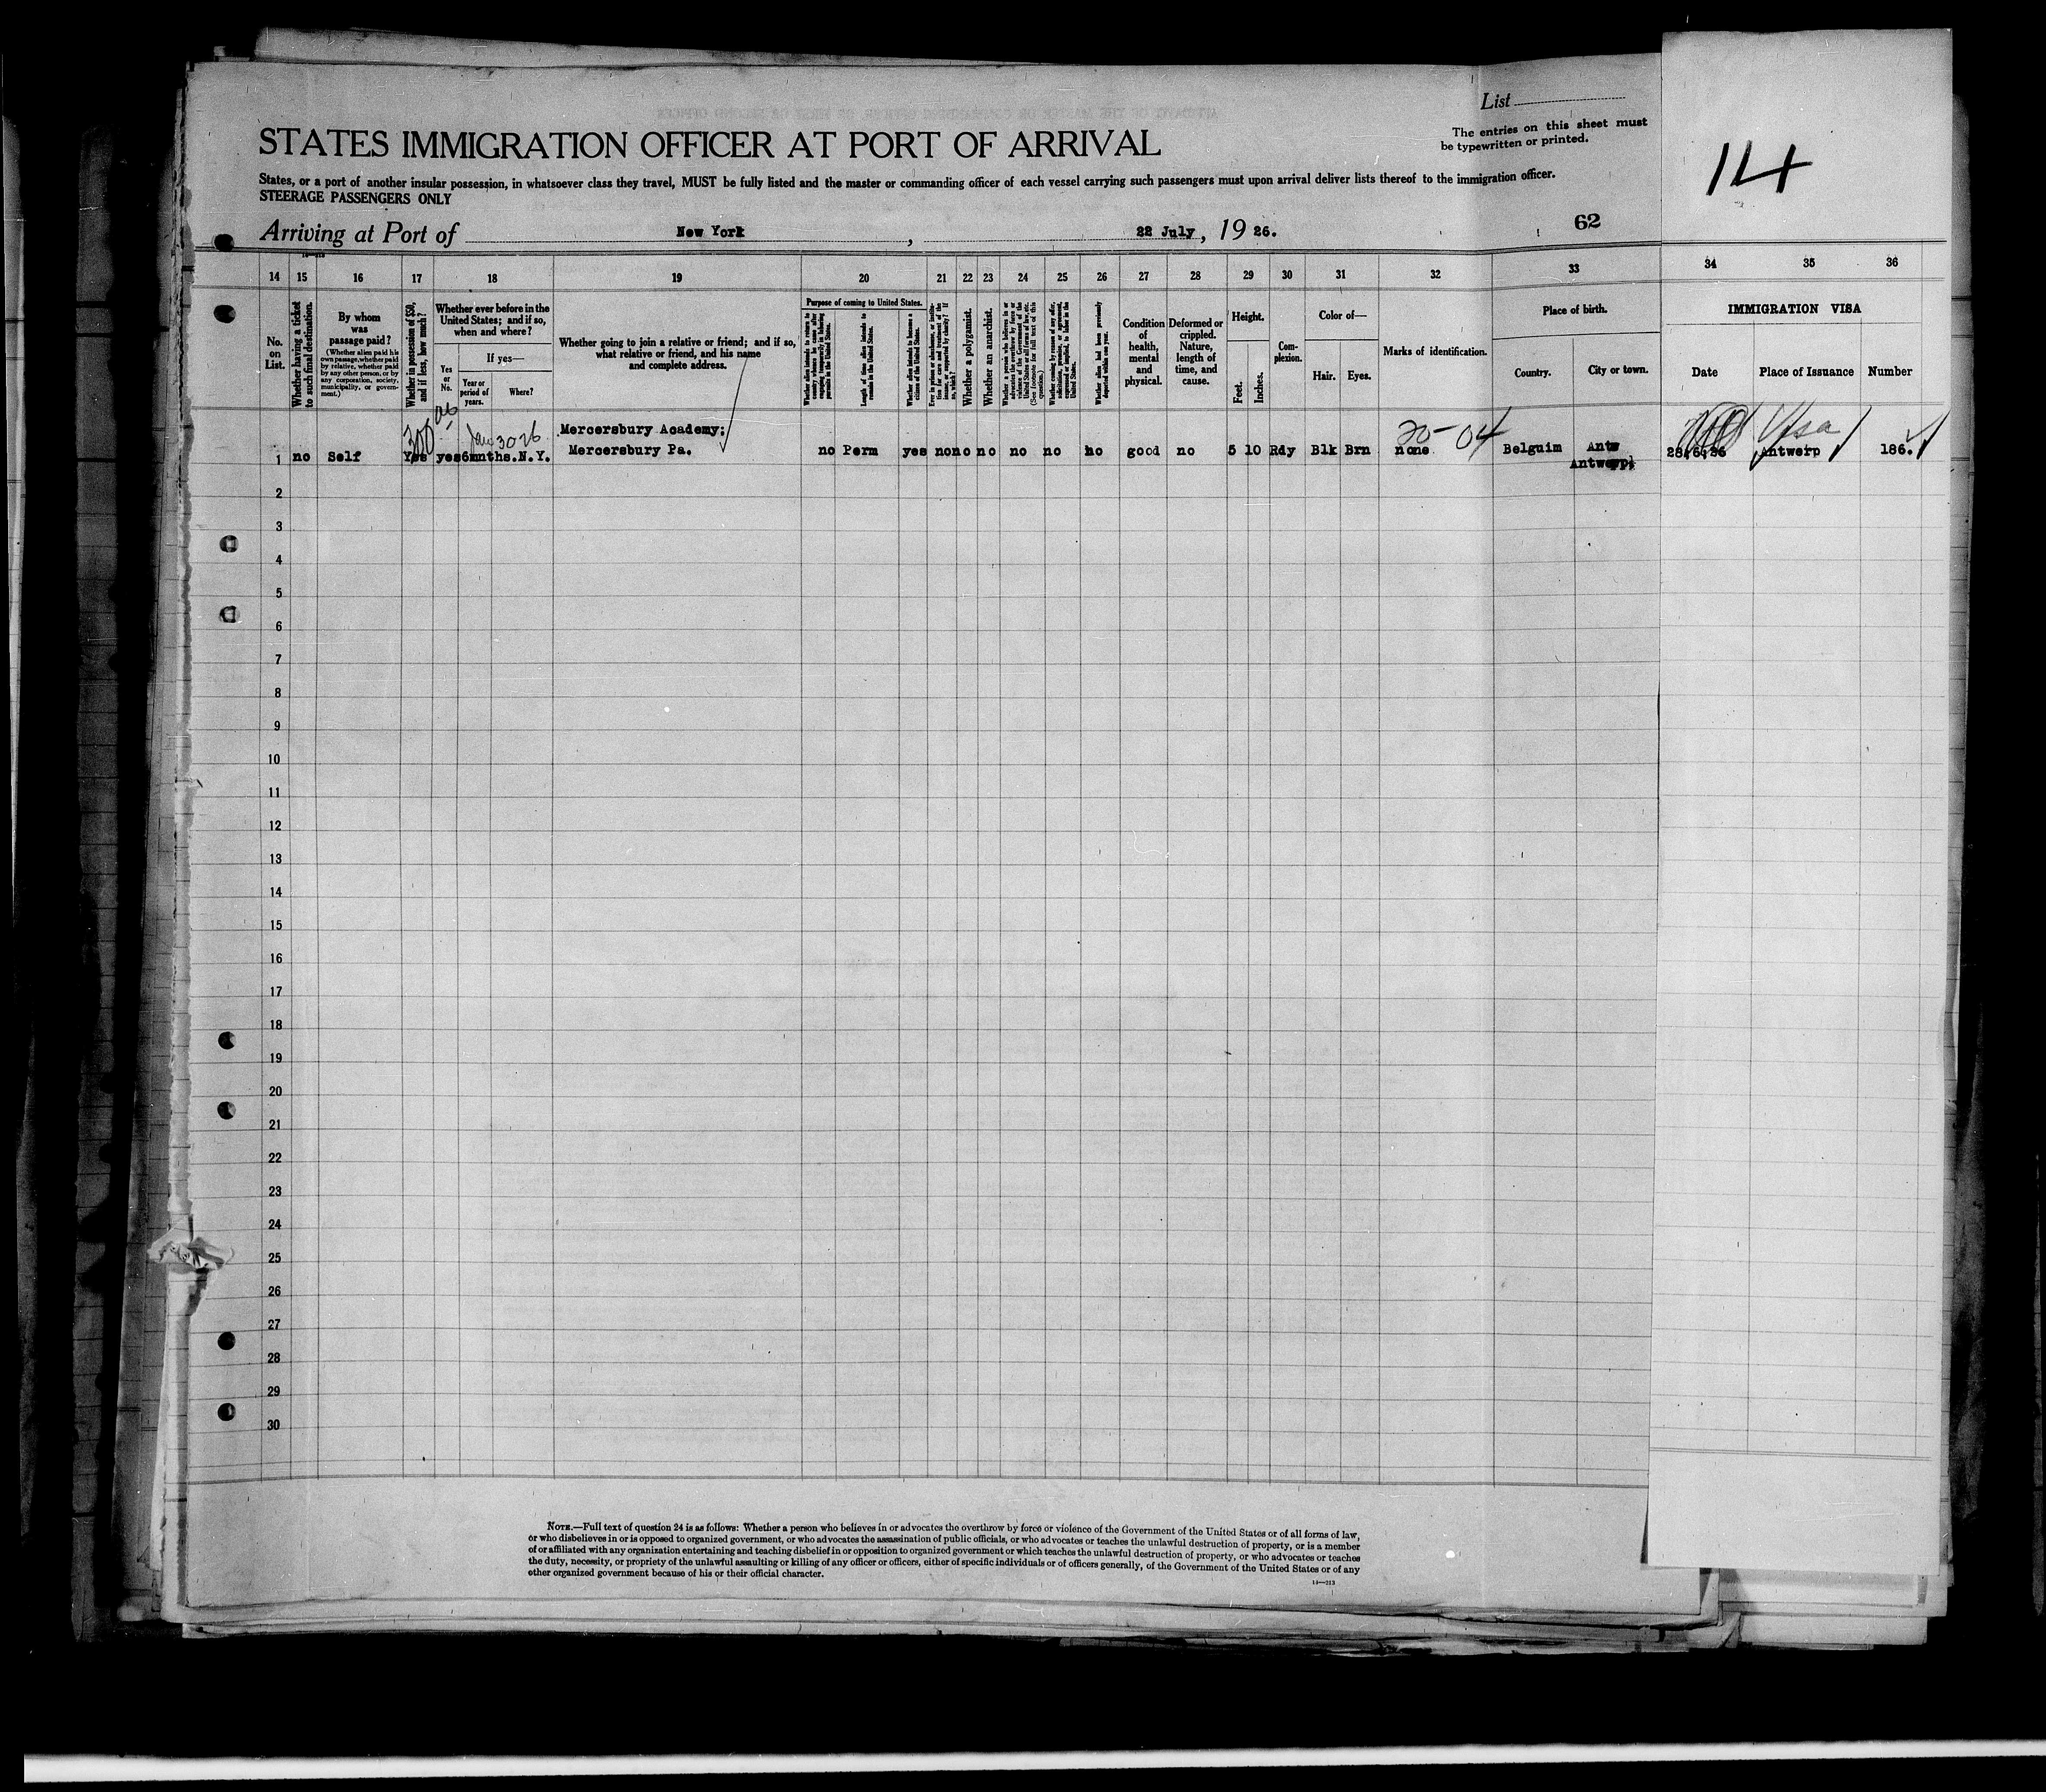 List
STATES IMMIGRATION OFFICER AT PORT OF ARRIVAL
The entries on this sheet must
be typewritten or printed.
14
States, or a port of another insular possession, in whatsoever class they travel, MUST be fully listed and the master or commanding officer of each vessel carrying such passengers must upon arrival deliver lists thereof to the immigration officer.
STEERAGE PASSENGERS ONLY
Arriving at Port of New York, 22 July, 19 26.
62
14 15 16 17 18 19 20 21 22 23 24 25 26 27 28 29 30 31 32 33 34 35 36
No.
on
List.
Whether having a ticket
to such final destination.
By whom
was
passage paid?
(Whether alien paid his
own passage, whether paid
by relative, whether paid
by any other person, or by
any corporation, society,
municipality, or govern-
ment.)
Whether in possession of $50,
and if less, how much?
Whether ever before in the
United States; and if so,
when and where?
Yes
or
No.
If yes—
Year or
period of
years.
Where?
Whether going to join a relative or friend; and if so,
what relative or friend, and his name
and complete address.
Purpose of coming to United States.
Whether alien intends to return to
country whence he came after
engaging temporarily in laboring
pursuits in the United States.
Length of time alien intends to
remain in the United States.
Whether alien intends to become a
citizen of the United States.
Ever in prison or almshouse, or institu-
tion for care and treatment of the
insane, or supported by charity? If
so, which?
Whether a polygamist.
Whether an anarchist.
Whether a person who believes in or
advocates the overthrow by force or
violence of the Government of the
United States or all forms of law, etc.
(See footnote for full text of this
question.)
Whether coming by reason of any offer,
solicitation, promise, or agreement,
expressed or implied, to labor in the
United States.
Whether alien had been previously
deported within one year.
Condition
of
health,
mental
and
physical.
Deformed or
crippled.
Nature,
length of
time, and
cause.
Height.
Feet.
Inches.
Com-
plexion.
Color of—
Hair.
Eyes.
Marks of identification.
Place of birth.
Country.
City or town.
IMMIGRATION VISA
Date
Place of Issuance
Number
300 00
Jan 30 26
Mercersbury Academy;
20-04
Visa
1 no Self Yes yes 6mnths. N.Y. Mercersbury Pa. no Perm yes no no no no no no good no 5 10 Rdy Blk Brn none Belguim Antw 28/6/26 Antwerp 186.
Antwerp
2
3
4
5
6
7
8
9
10
11
12
13
14
15
16
17
18
19
20
21
22
23
24
25
26
27
28
29
30
NOTE.—Full text of question 24 is as follows: Whether a person who believes in or advocates the overthrow by force or violence of the Government of the United States or of all forms of law,
or who disbelieves in or is opposed to organized government, or who advocates the assassination of public officials, or who advocates or teaches the unlawful destruction of property, or is a member
of or affiliated with any organization entertaining and teaching disbelief in or opposition to organized government or which teaches the unlawful destruction of property, or who advocates or teaches
the duty, necessity, or propriety of the unlawful assaulting or killing of any officer or officers, either of specific individuals or of officers generally, of the Government of the United States or of any
other organized government because of his or their official character.
14—213